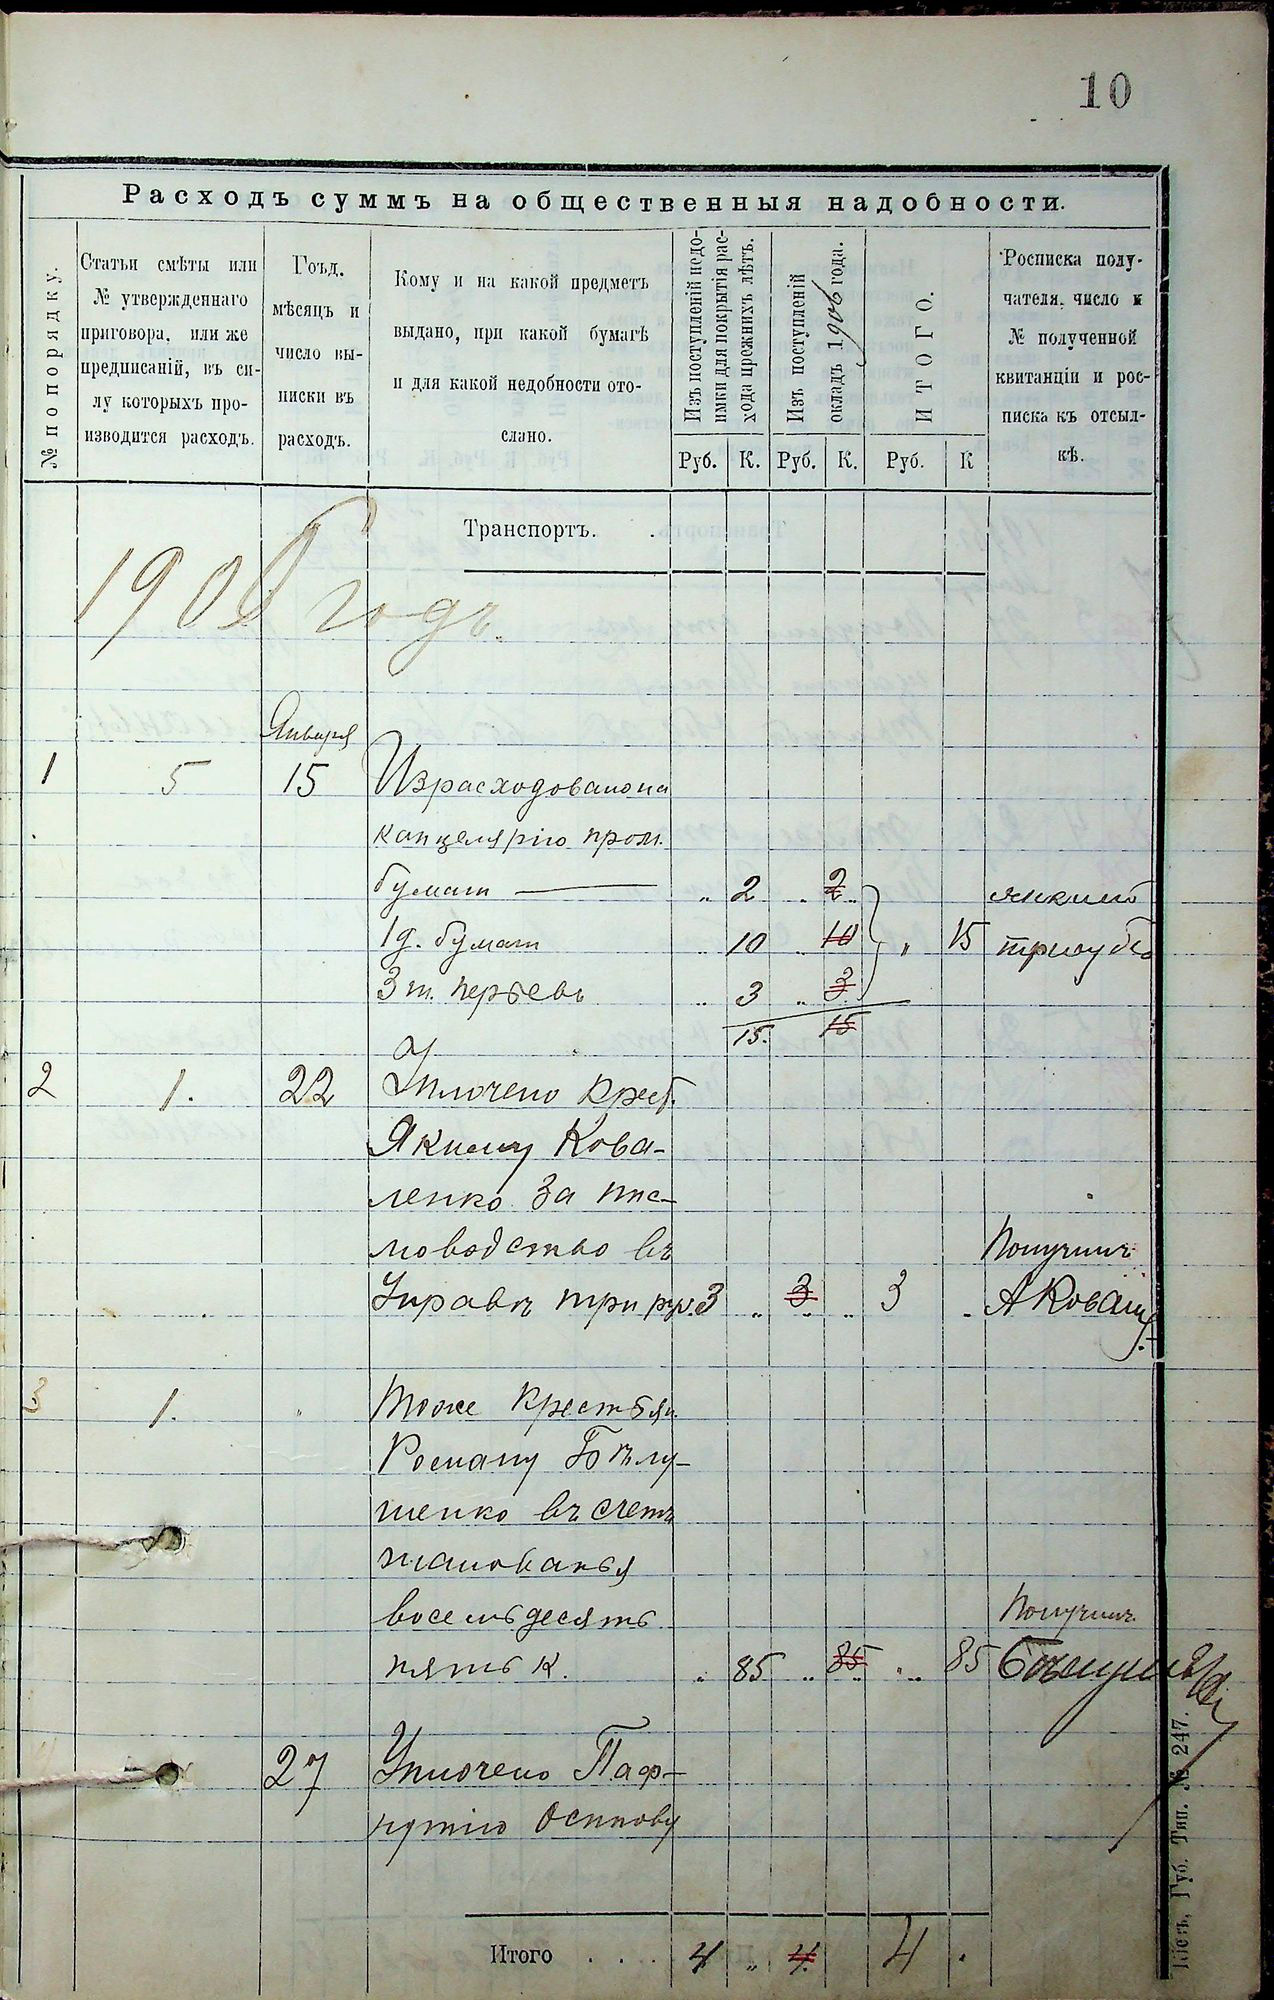 10
Расходъ суммъ на общественныя надобности.
№ по порядку.
Статьи смѣты или
№ утвержденнаго
приговора, или же
предписаній, въ си-
лу которыхъ про-
изводится расходъ.
Гоъд.
мѣсяцъ и
число вы-
писки въ
расходъ.
Кому и на какой предметъ
выдано, при какой бумагѣ
и для какой недобности ото-
слано.
Изъ поступленій недо-
имки для покрытія рас-
хода прежнихъ лѣтъ.
Изъ поступленій
окладъ 1906 года.
ИТОГО.
Росписка полу-
чателя, число и
№ полученной
квитанціи и рос-
писка къ отсыл-
кѣ.
Руб. К. Руб. К. Руб. К
Транспортъ. .
1906 годъ.
Января
1 5 15 Израсходовано на
канцелярію пром.
бумаги — „ 2 „ 2 „ Якимъ
1 д. бумаги „ 10 „ 10 „ 15
3 т. перьевъ „ 3 „ 3
15. 15
2 1. 22 Уплочено крест.
Якиму Кова-
ленко за пис-
моводство въ
Получилъ
Управѣ три ру. 3 „ 3 „ 3 „
3 1. „ Тоже крестьян.
Роману Бѣлу-
шенко въ счетъ
жалованья
восемьдесятъ Получилъ
пять к. „ 85 „ 85 „ 85
4 27 Уплочено Паф-
нутію Осипову
Итого . . . . 4 „ 4 4 .
Кіевъ, Губ. Тип. № 247.